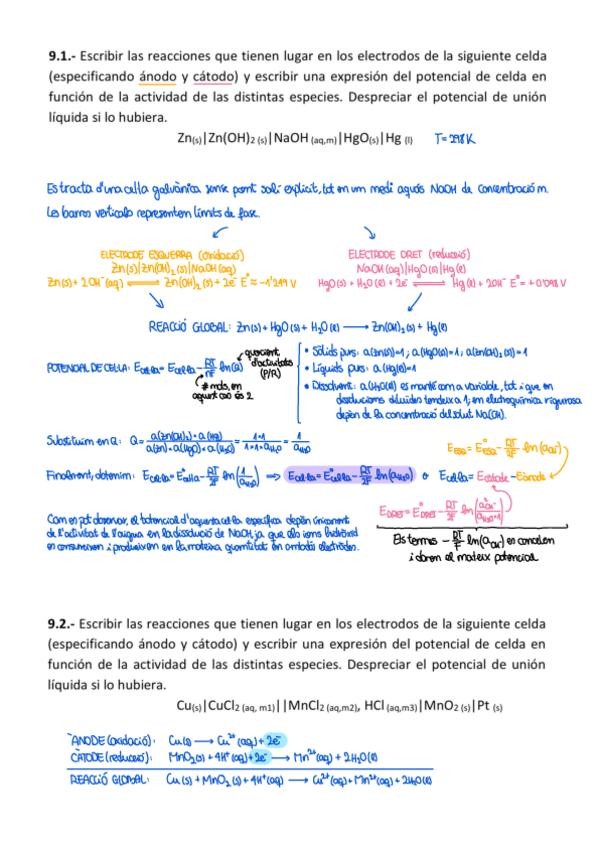 9.1.- Escribir las reacciones que tienen lugar en los electrodos de la siguiente celda
(especificando ánodo y cátodo) y escribir una expresión del potencial de celda en
función de la actividad de las distintas especies. Despreciar el potencial de unión
líquida si lo hubiera.
Zn(s)|Zn(OH)2 (s)|NaOH (aq,m)|HgO(s)|Hg (l) T=298K
Es tracta d'una cel·la galvànica sense pont salí explícit, tot en un medi aquós NaOH de concentració m.
Les barres verticals representen límits de fase.
ELECTRODE ESQUERRA (oxidació)
Zn(s)|Zn(OH)2(s)|NaOH(aq)
Zn(s) + 2OH⁻(aq) ⇌ Zn(OH)2(s) + 2e⁻ E° ≈ -1'249 V
ELECTRODE DRET (reducció)
NaOH(aq)|HgO(s)|Hg(l)
HgO(s) + H2O(l) + 2e⁻ ⇌ Hg(l) + 2OH⁻ E° = +0'098 V
REACCIÓ GLOBAL: Zn(s) + HgO(s) + H2O(l) → Zn(OH)2(s) + Hg(l)
POTENCIAL DE CEL·LA: Ecel·la = E°cel·la - RT/nF ln(Q)
quocient
d'activitats
(P/R)
# mols, en
aquest cas és 2
• Sòlids purs: a(Zn(s))=1; a(HgO(s))=1; a(Zn(OH)2(s))=1
• Líquids purs: a(Hg(l))=1
• Dissolvent: a(H2O(l)) es manté com a variable, tot i que en
dissolucions diluïdes tendeix a 1; en electroquímica rigurosa
depèn de la concentració del solut NaOH.
Substituïm en Q: Q = a(Zn(OH)2)·a(Hg) / a(Zn)·a(HgO)·a(H2O) = 1·1 / 1·1·aH2O = 1/aH2O
Finalment, obtenim: Ecel·la = E°cel·la - RT/2F ln(1/aH2O) ⇒ Ecel·la = E°cel·la - RT/2F ln(aH2O) o Ecel·la = Ecàtode - Eànode
EESQ = E°ESQ - RT/2F ln(a²OH⁻)
EDRET = E°DRET - RT/2F ln(a²OH⁻/aH2O·1)
Com es pot observar, el potencial d'aquesta cel·la específica depèn únicament
de l'activitat de l'aigua en la dissolució de NaOH, ja que els ions hidròxid
es consumeixen i produeixen en la mateixa quantitat en ambdós elèctrodes.
Els termes - RT/F ln(aOH⁻) es cancel·len
i donen el mateix potencial
9.2.- Escribir las reacciones que tienen lugar en los electrodos de la siguiente celda
(especificando ánodo y cátodo) y escribir una expresión del potencial de celda en
función de la actividad de las distintas especies. Despreciar el potencial de unión
líquida si lo hubiera.
Cu(s)|CuCl2 (aq, m1)||MnCl2 (aq,m2), HCl (aq,m3)|MnO2 (s)|Pt (s)
ÀNODE (oxidació): Cu(s) → Cu²⁺(aq) + 2e⁻
CÀTODE (reducció): MnO2(s) + 4H⁺(aq) + 2e⁻ → Mn²⁺(aq) + 2H2O(l)
REACCIÓ GLOBAL: Cu(s) + MnO2(s) + 4H⁺(aq) → Cu²⁺(aq) + Mn²⁺(aq) + 2H2O(l)